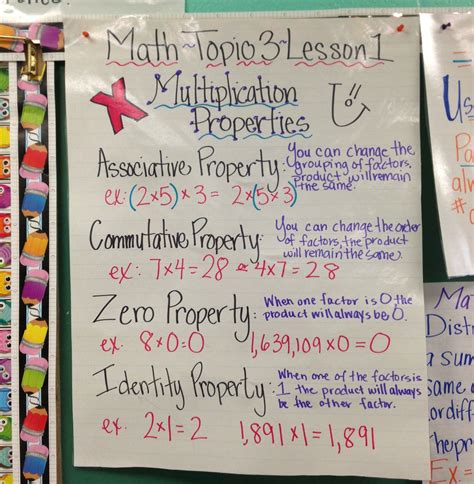 Math~Topic 3~Lesson 1
Multiplication
Properties
Associative Property: You can change the
grouping of factors,
product will remain
the same.
ex: (2×5)×3 = 2×(5×3)
Commutative Property: You can change the order
of factors, the product
will remain the same.
ex: 7×4=28 or 4×7=28
Zero Property: When one factor is 0 the
product will always be 0.
ex. 8×0=0 1,639,109×0=0
Identity Property: When one of the factors is
1 the product will always
be the other factor.
ex. 2×1=2 1,891×1=1,891
Ma
Dist
a sum
same
or diff
Ex.=